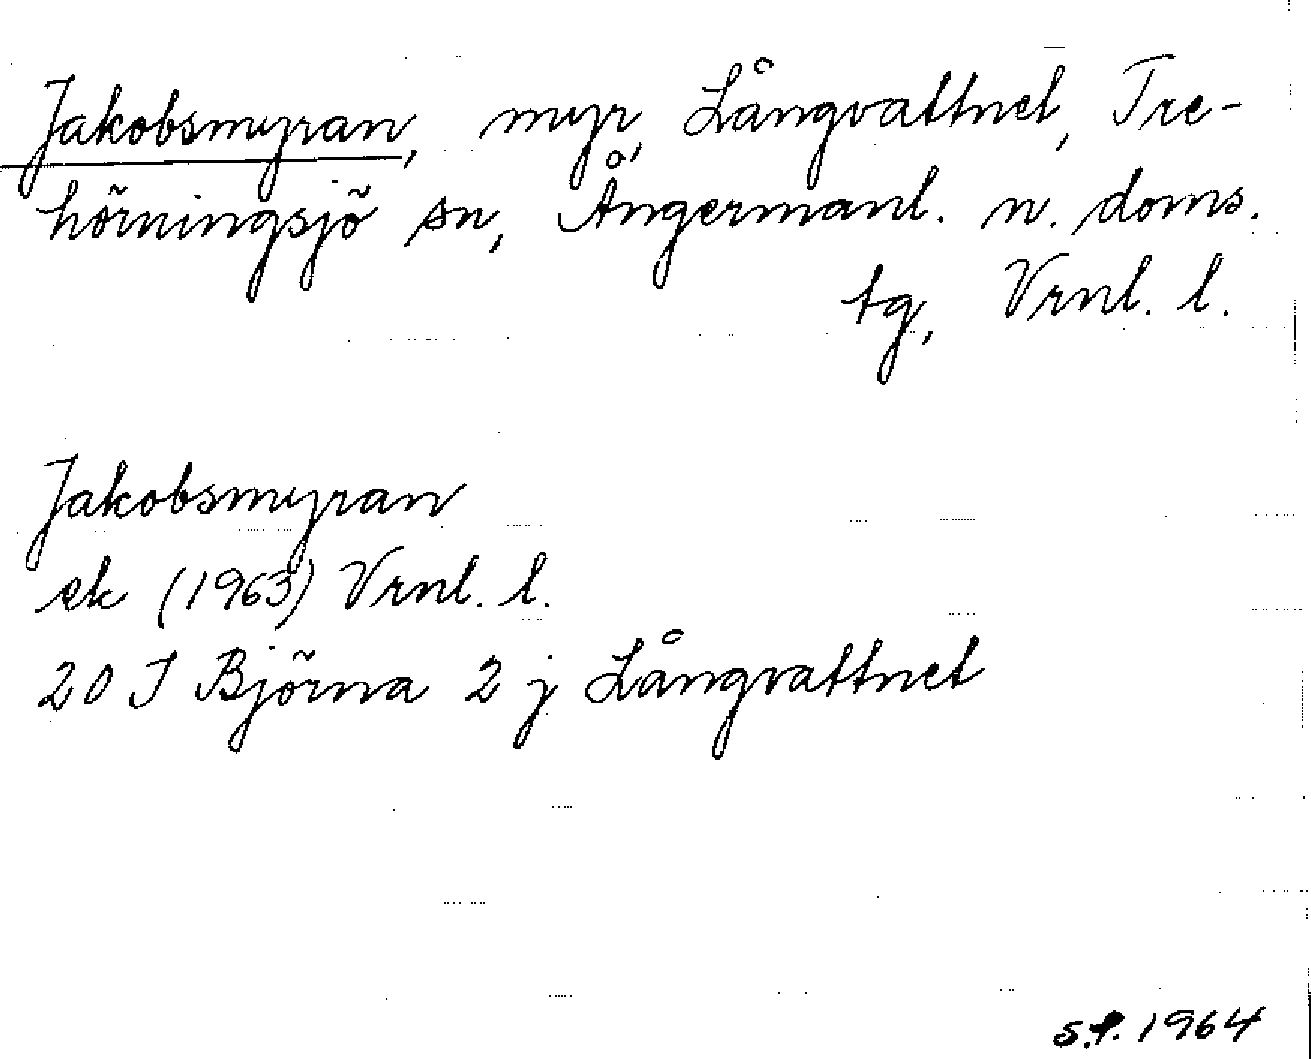 Jakobsmyran, myr, Långvattnet, Tre-
hörningsjö sn, Ångermanl. n. doms.
tg, Vrnl. l.
Jakobsmyran
ek (1963) Vrnl. l.
20 J Björna 2 j Långvattnet
s.f. 1964